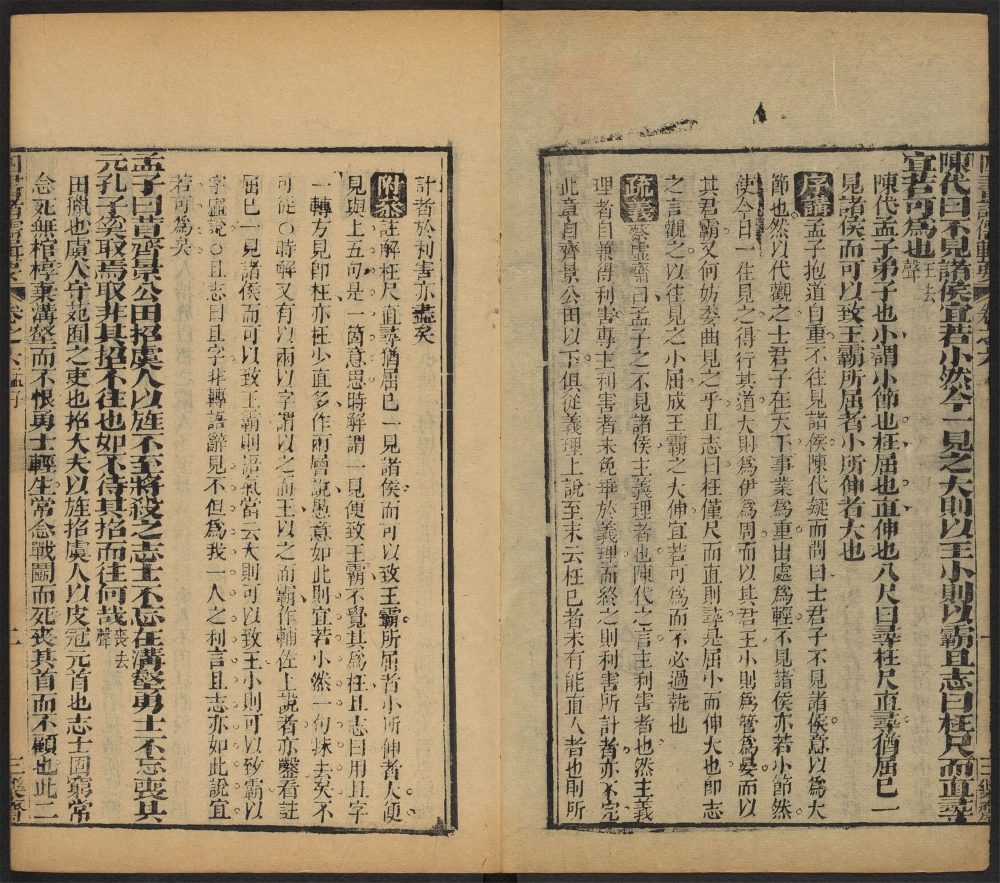 陳代曰不見諸侯宜若小然今一見之大則以王小則以霸且志曰枉尺而直尋
宜若可爲也王去聲
陳代孟子弟子也小謂小節也枉屈也直伸也八尺曰尋枉尺直尋猶屈已一
見諸侯而可以致王霸所屈者小所伸者大也
序講孟子抱道自重不往見諸侯陳代疑而問曰士君子不見諸侯意以爲大
節也然以代觀之士君子在天下事業爲重出處爲輕不見諸侯亦若小節然
使今日一往見之得行其道大則爲伊爲周而以其君王小則爲管爲晏而以
其君霸又何妨委曲見之乎且志曰枉僅尺而直則尋是屈小而伸大也卽志
之言觀之以往見之小屈成王霸之大伸宜若可爲而不必過執也
疏義蔡虛齋曰孟子之不見諸侯主義理者也陳代之言主利害者也然主義
理者自兼得利害專主利害者未免乖於義理而終之則利害所計者亦不完
此章自齊景公田以下俱從義理上說至末云枉已者未有能直人者也則所
計者於利害亦盡矣
附叅註解枉尺直尋猶屈已一見諸侯而可以致王霸所屈者小所伸者大便
見與上五句是一箇意思時解謂一見便致王霸不覺其爲枉且志曰用且字
一轉方見卽枉亦枉少直多作兩層說愚意如此則宜若小然一句抹去矣不
可從〇時解又有以兩以字謂以之而王以之而霸作輔佐上說者亦鑿看註
屈已一見諸侯而可以致王霸則語氣當云大則可以致王小則可以致霸以
字虛說〇且志曰且字非轉語辭見不但爲我一人之利言且志亦如此說宜
若可爲矣
孟子曰昔齊景公田招虞人以旌不至將殺之志士不忘在溝壑勇士不忘喪其
元孔子奚取焉取非其招不往也如不待其招而往何哉喪去聲
田獵也虞人守苑囿之吏也招大夫以旌招虞人以皮冠元首也志士固窮常
念死無棺槨棄溝壑而不恨勇士輕生常念戰鬬而死喪其首而不顧也此二
卷之六孟子
二
三樂齋